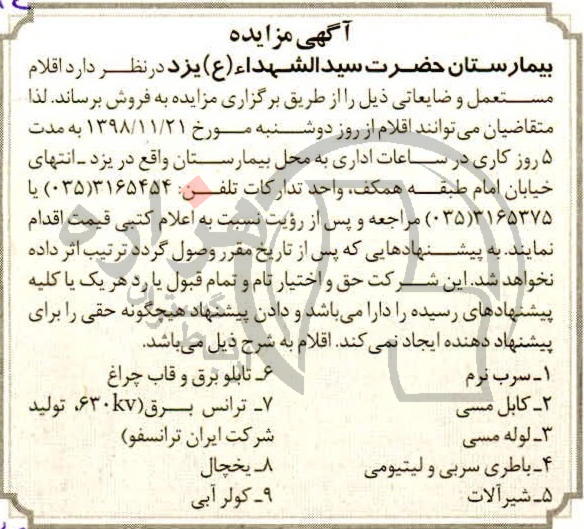 آگهی مزایده
بیمارستان حضرت سیدالشهداء(ع) یزد درنظر دارد اقلام
مستعمل و ضایعاتی ذیل را از طریق برگزاری مزایده به فروش برساند. لذا
متقاضیان می‌توانند اقلام از روز دوشنبه مورخ ۱۳۹۸/۱۱/۲۱ به مدت
۵ روز کاری در ساعات اداری به محل بیمارستان واقع در یزد ـ انتهای
خیابان امام طبقه همکف واحد تدارکات تلفن: ۳۱۶۵۴۵۴(۰۳۵) یا
۳۱۶۵۳۷۵(۰۳۵) مراجعه و پس از رؤیت نسبت به اعلام کتبی قیمت اقدام
نمایند. به پیشنهادهایی که پس از تاریخ مقرر وصول گردد ترتیب اثر داده
نخواهد شد. این شرکت حق و اختیار تام و تمام قبول یا رد هر یک یا کلیه
پیشنهادهای رسیده را دارا می‌باشد و دادن پیشنهاد هیچگونه حقی را برای
پیشنهاد دهنده ایجاد نمی‌کند. اقلام به شرح ذیل می‌باشد.
۱ـ سرب نرم
۲ـ کابل مسی
۳ـ لوله مسی
۴ـ باطری سربی و لیتیومی
۵ـ شیرآلات
۶ـ تابلو برق و قاب چراغ
۷ـ ترانس برق(۶۳۰kv، تولید
شرکت ایران ترانسفو)
۸ـ یخچال
۹ـ کولر آبی
هزاره